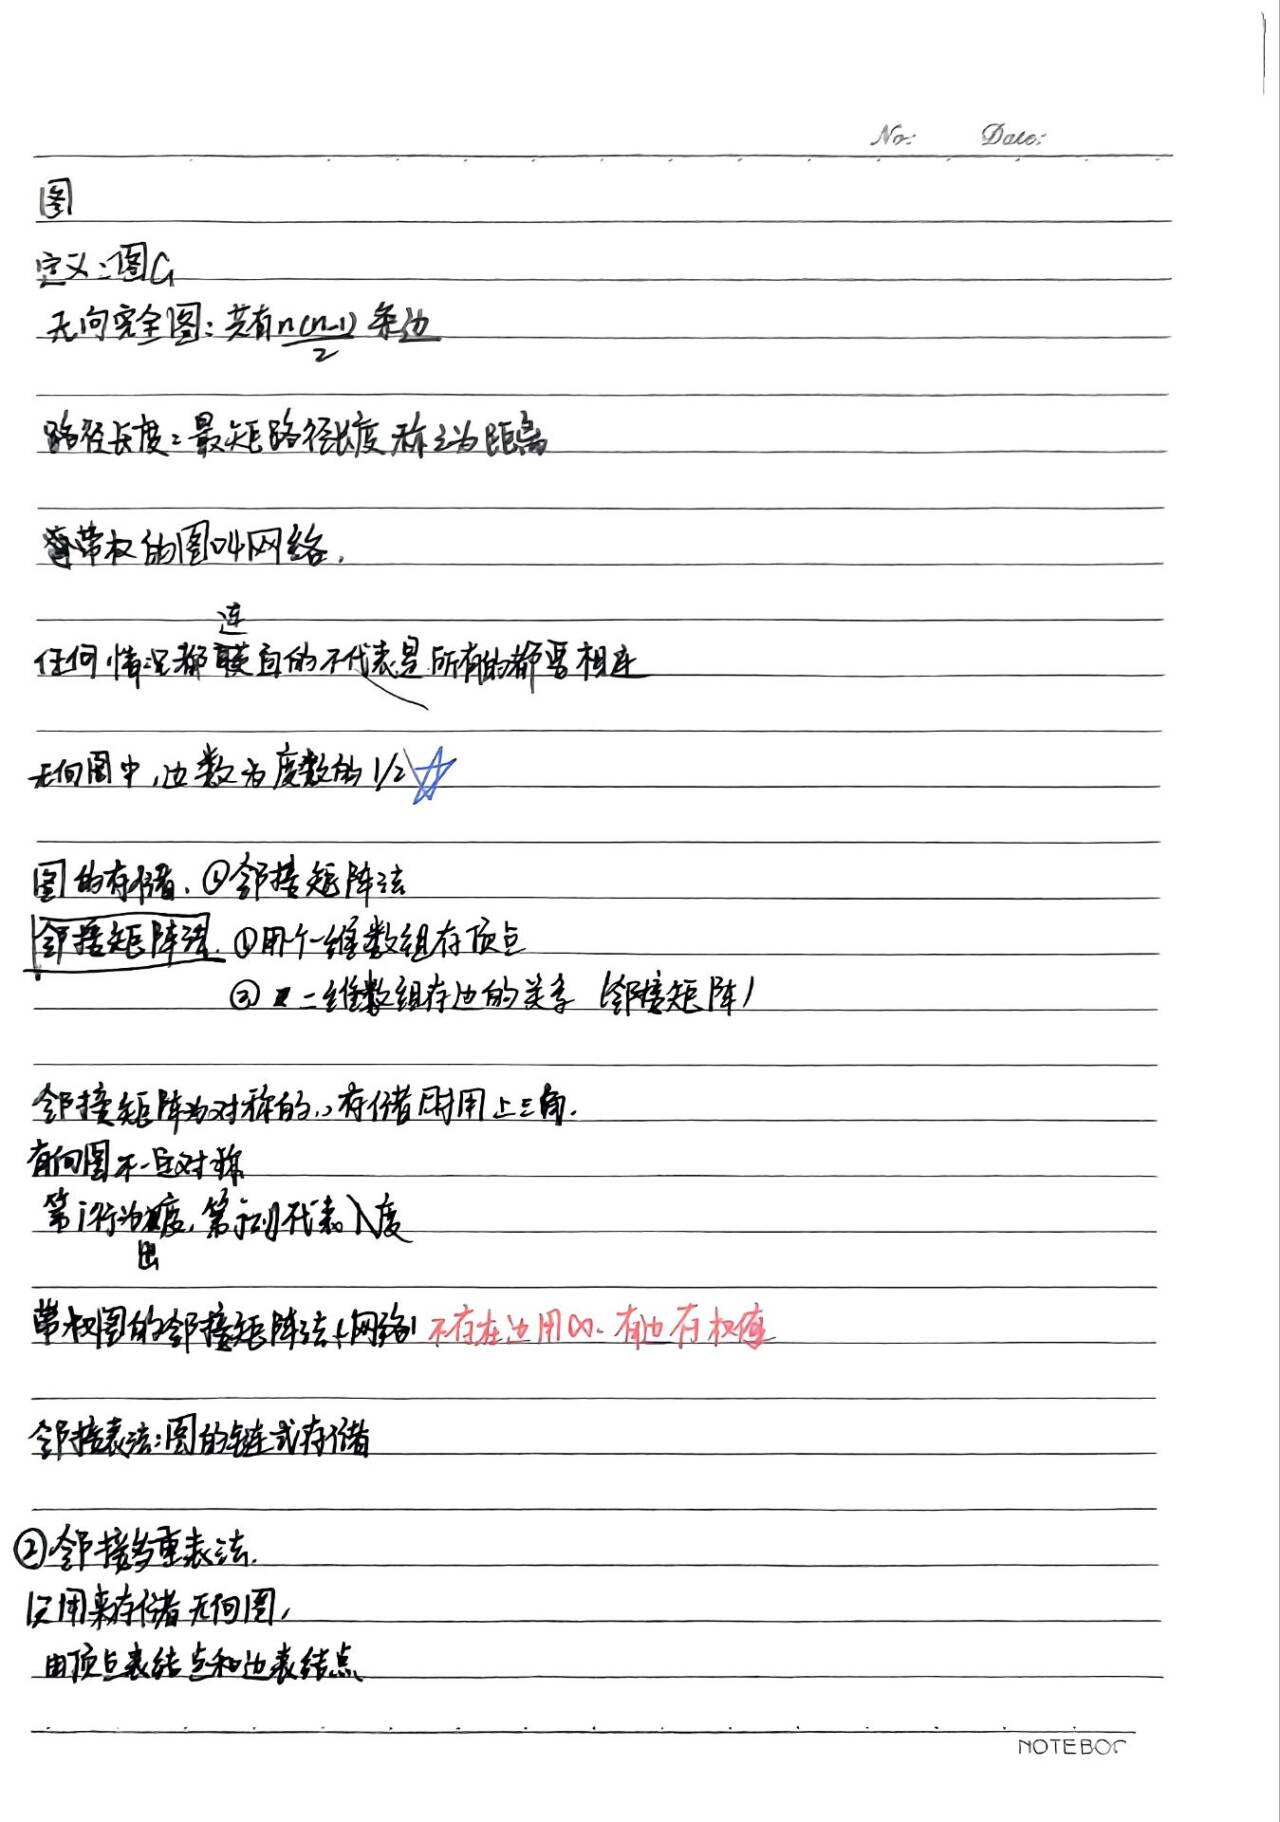 No: Date:
图
定义:图G
无向完全图:共有n(n-1)/2 条边
路径长度:最短路径长度称之为距离
带权的图叫网络.
连
任何情况都 直的不代表是所有的都要相连
无向图中,边数为度数的1/2 ☆
图的存储.①邻接矩阵法
邻接矩阵法.①用个一维数组存顶点
② 二维数组存边的关系(邻接矩阵)
邻接矩阵为对称的,存储时用上三角.
有向图不一定对称
第i行为 度,第i列代表入度
出
带权图的邻接矩阵法(网络) 不存在边用∞.有边存权值
邻接表法:图的链式存储
②邻接多重表法.
只用来存储无向图,
由顶点表结点和边表结点
NOTEBO